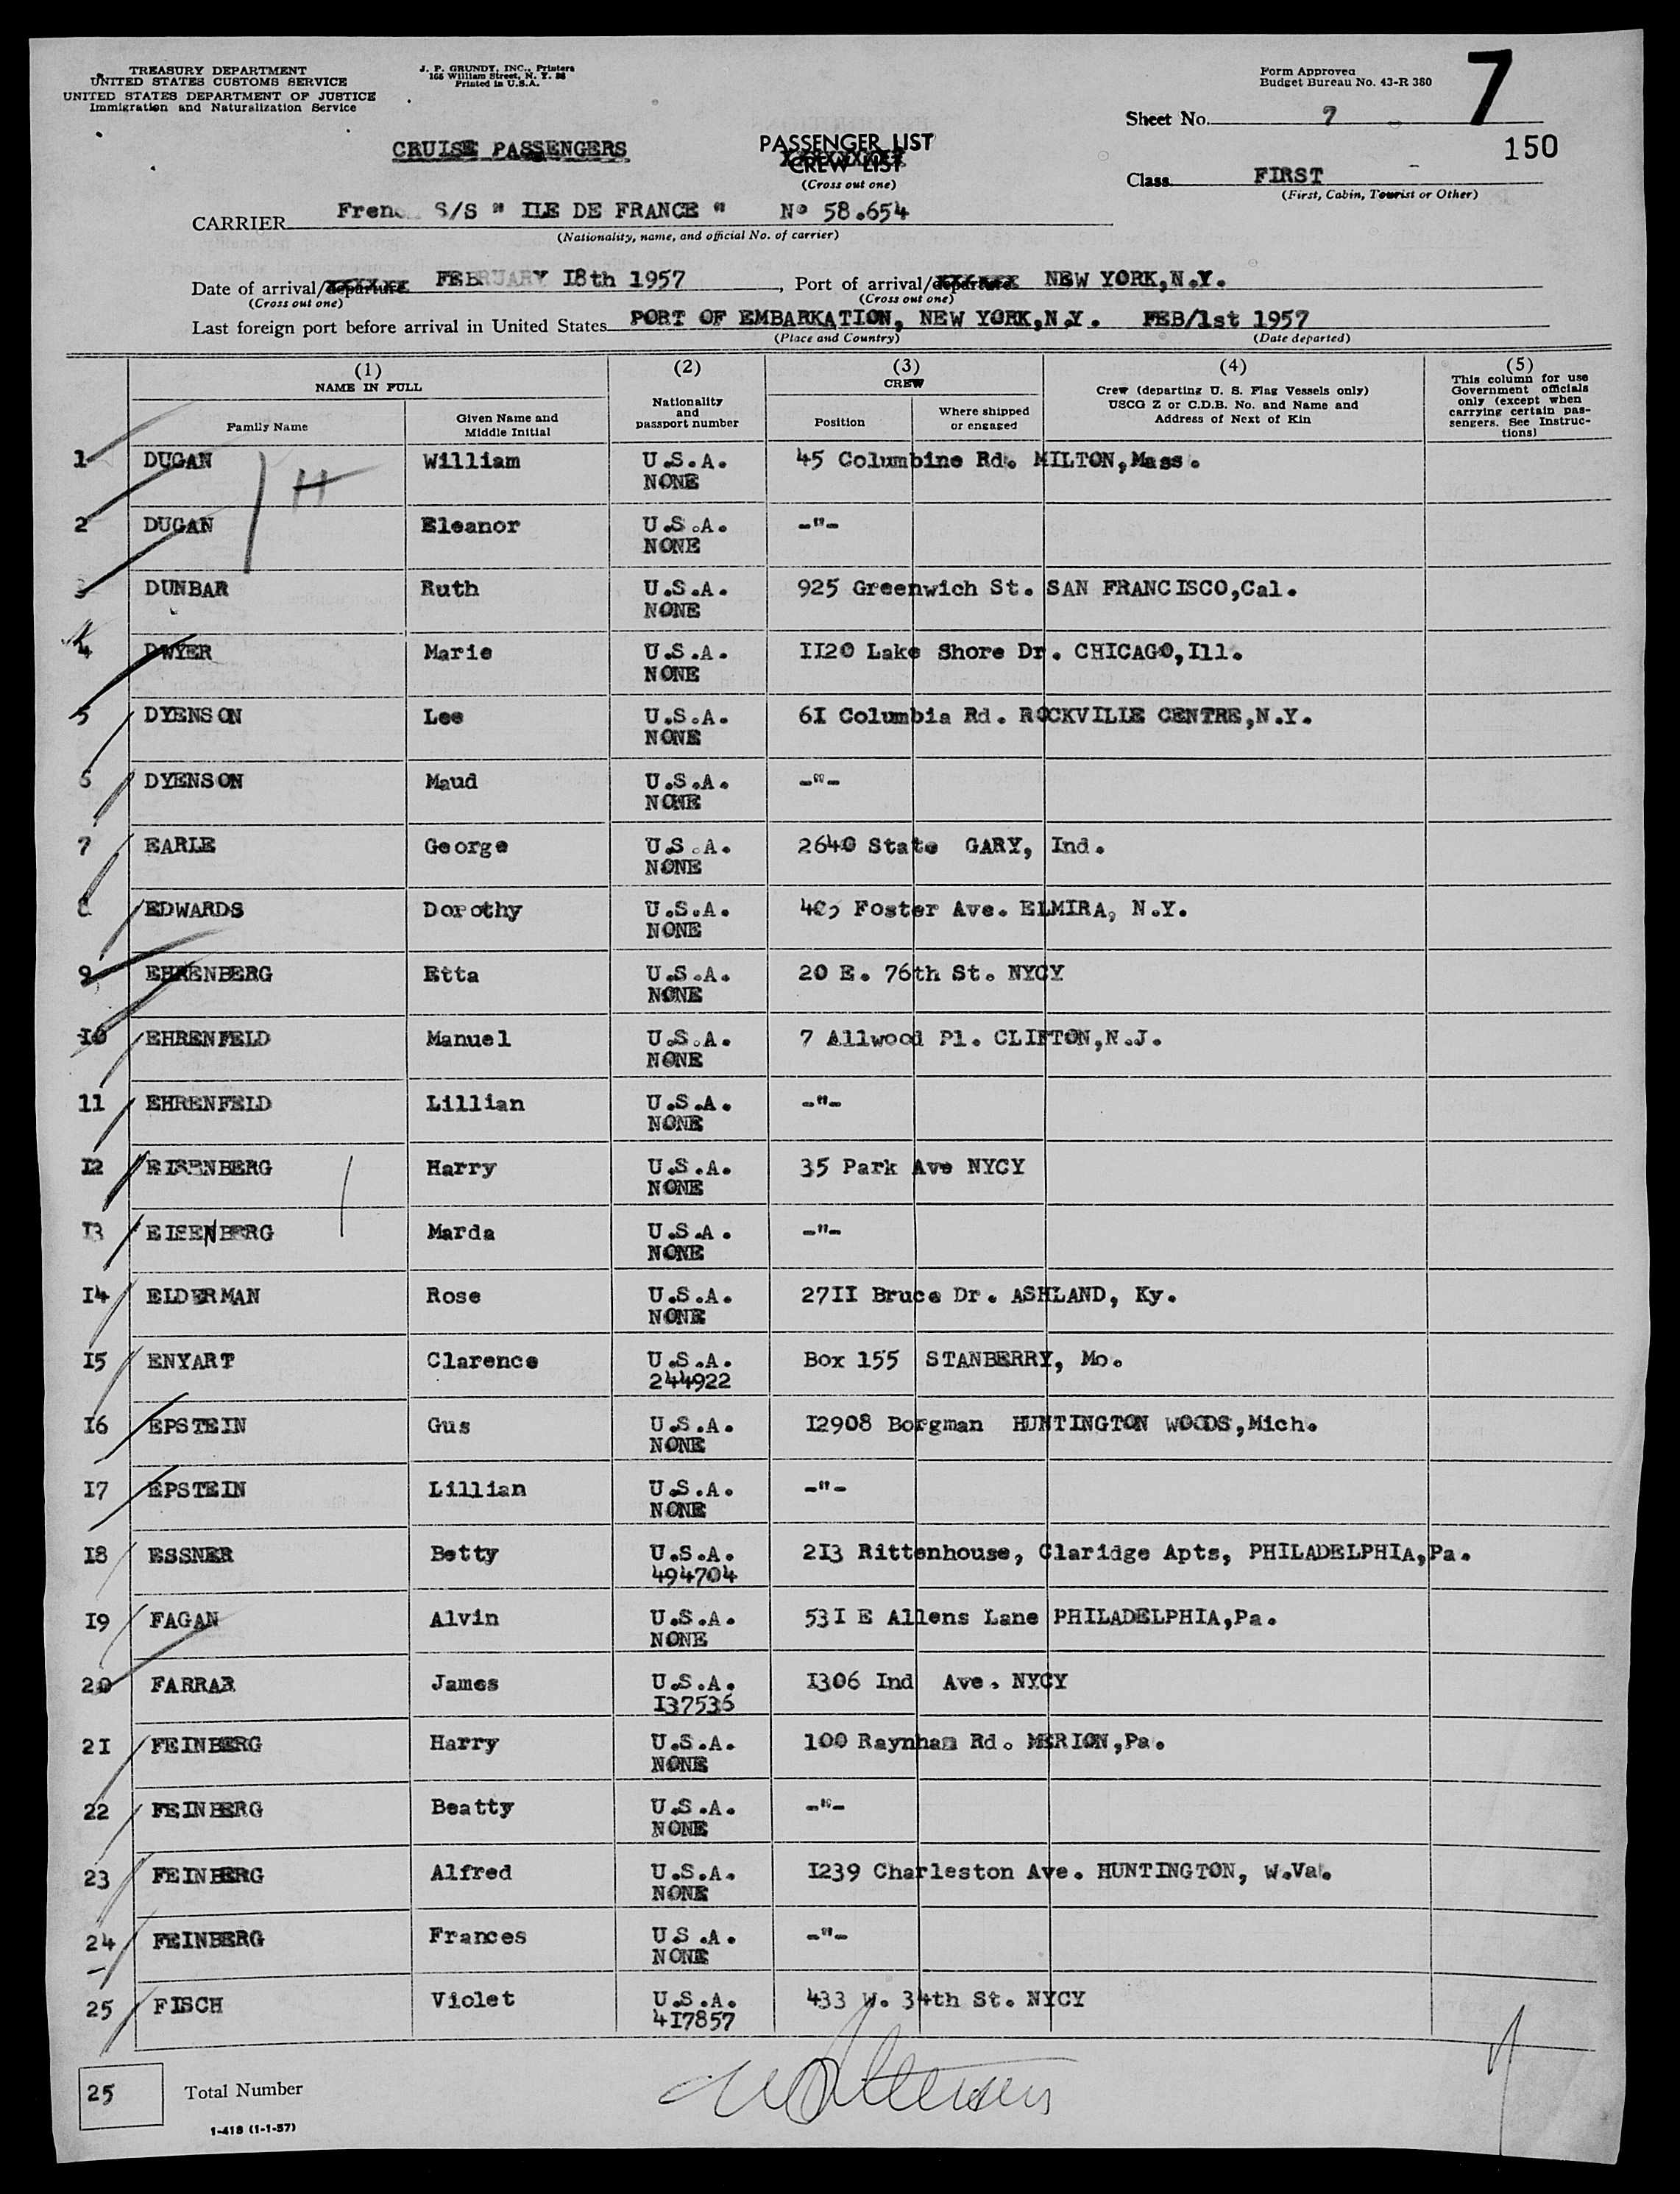 TREASURY DEPARTMENT
UNITED STATES CUSTOMS SERVICE
UNITED STATES DEPARTMENT OF JUSTICE
Immigration and Naturalization Service
J. P. GRUNDY, INC., Printers
165 William Street, N. Y. 38
Printed in U.S.A.
Form Approved
Budget Bureau No. 43-R 380
7
Sheet No. 7
150
CRUISE PASSENGERS
PASSENGER LIST
CREW LIST
(Cross out one)
Class FIRST
(First, Cabin, Tourist or Other)
CARRIER French S/S " ILE DE FRANCE " No 58.654
(Nationality, name, and official No. of carrier)
Date of arrival/departure FEBRUARY I8th 1957, Port of arrival/departure NEW YORK,N.Y.
(Cross out one) (Cross out one)
Last foreign port before arrival in United States PORT OF EMBARKATION, NEW YORK,N.Y. FEB/1st 1957
(Place and Country) (Date departed)
(1) (2) (3) (4) (5)
NAME IN FULL
Family Name
Given Name and
Middle Initial
Nationality
and
passport number
CREW
Position
Where shipped
or engaged
Crew (departing U. S. Flag Vessels only)
USCG Z or C.D.B. No. and Name and
Address of Next of Kin
This column for use
Government officials
only (except when
carrying certain pas-
sengers. See Instruc-
tions)
1 DUGAN William U.S.A. 45 Columbine Rd. MILTON,Mass.
NONE
H
2 DUGAN Eleanor U.S.A. -"-
NONE
3 DUNBAR Ruth U.S.A. 925 Greenwich St. SAN FRANCISCO,Cal.
NONE
4 DWYER Marie U.S.A. II20 Lake Shore Dr. CHICAGO,Ill.
NONE
5 DYENSON Lee U.S.A. 6I Columbia Rd. ROCKVILLE CENTRE,N.Y.
NONE
6 DYENSON Maud U.S.A. -"-
NONE
7 EARLE George U.S.A. 2640 State GARY, Ind.
NONE
8 EDWARDS Dorothy U.S.A. Foster Ave. ELMIRA, N.Y.
NONE
9 EHRENBERG Etta U.S.A. 20 E. 76th St. NYCY
NONE
10 EHRENFELD Manuel U.S.A. 7 Allwood Pl. CLIFTON,N.J.
NONE
11 EHRENFELD Lillian U.S.A. -"-
NONE
I2 EISENBERG Harry U.S.A. 35 Park Ave NYCY
NONE
I3 EISENBERG Marda U.S.A. -"-
NONE
I4 ELDERMAN Rose U.S.A. 27II Bruce Dr. ASHLAND, Ky.
NONE
I5 ENYART Clarence U.S.A. Box 155 STANBERRY, Mo.
244922
I6 EPSTEIN Gus U.S.A. I2908 Borgman HUNTINGTON WOODS,Mich.
NONE
I7 EPSTEIN Lillian U.S.A. -"-
NONE
I8 ESSNER Betty U.S.A. 2I3 Rittenhouse, Claridge Apts, PHILADELPHIA,Pa.
494704
I9 FAGAN Alvin U.S.A. 53I E Allens Lane PHILADELPHIA,Pa.
NONE
20 FARRAR James U.S.A. I306 Ind Ave. NYCY
I37536
2I FEINBERG Harry U.S.A. 100 Raynham Rd. MERION,Pa.
NONE
22 FEINBERG Beatty U.S.A. -"-
NONE
23 FEINBERG Alfred U.S.A. I239 Charleston Ave. HUNTINGTON, W.Va.
NONE
24 FEINBERG Frances U.S.A. -"-
NONE
25 FISCH Violet U.S.A. 433 W. 34th St. NYCY
4I7857
25 Total Number
1-418 (1-1-57)